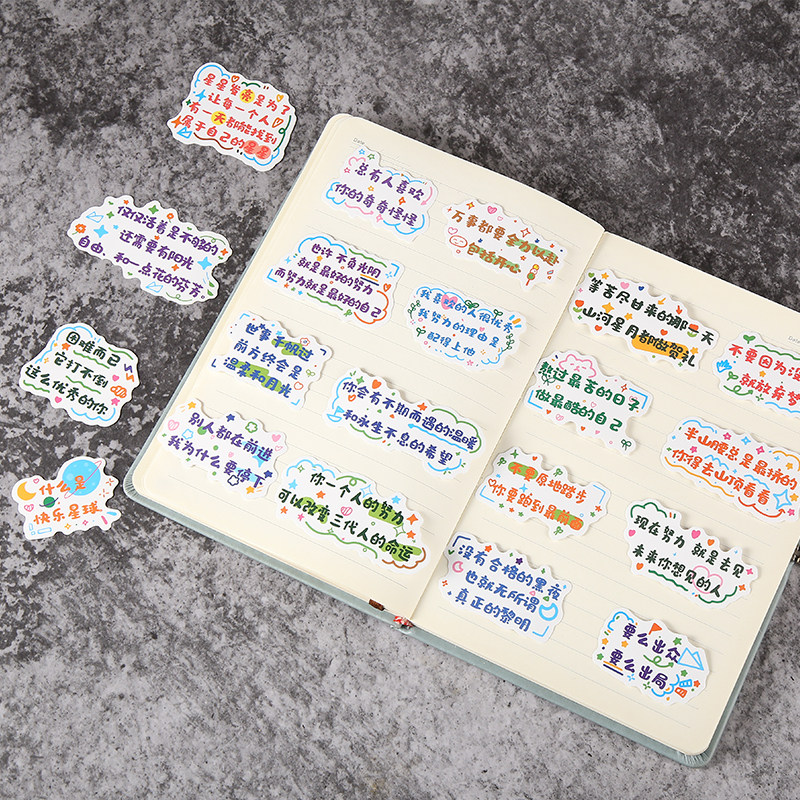 星星发亮是为了
让每一个人
有一天都能找到
属于自己的星星
仅仅活着是不够的
还需要有阳光
自由 和一点花的芬芳
困难而已
它打不倒
这么优秀的你
什么是
快乐星球
Date
总有人喜欢
你的奇奇怪怪
万事都要全力以赴
包括开心
也许 不负光阴
就是最好的努力
而努力就是最好的自己
我喜欢的人很优秀
我努力的理由是
配得上他
世事千帆过
前方终会是
温柔和月光
你会有不期而遇的温暖
和永生不息的希望
别人都在前进
我为什么要停下
你一个人的努力
可以改变三代人的命运
等苦尽甘来的那一天
山河星月都做贺礼
不要因为没
就放弃梦
熬过最苦的日子
做最酷的自己
半山腰总是最挤的
你得去山顶看看
不要原地踏步
你要跑到最前面
现在努力 就是去见
未来你想见的人
没有合格的黑夜
也就无所谓
真正的黎明
要么出众
要么出局